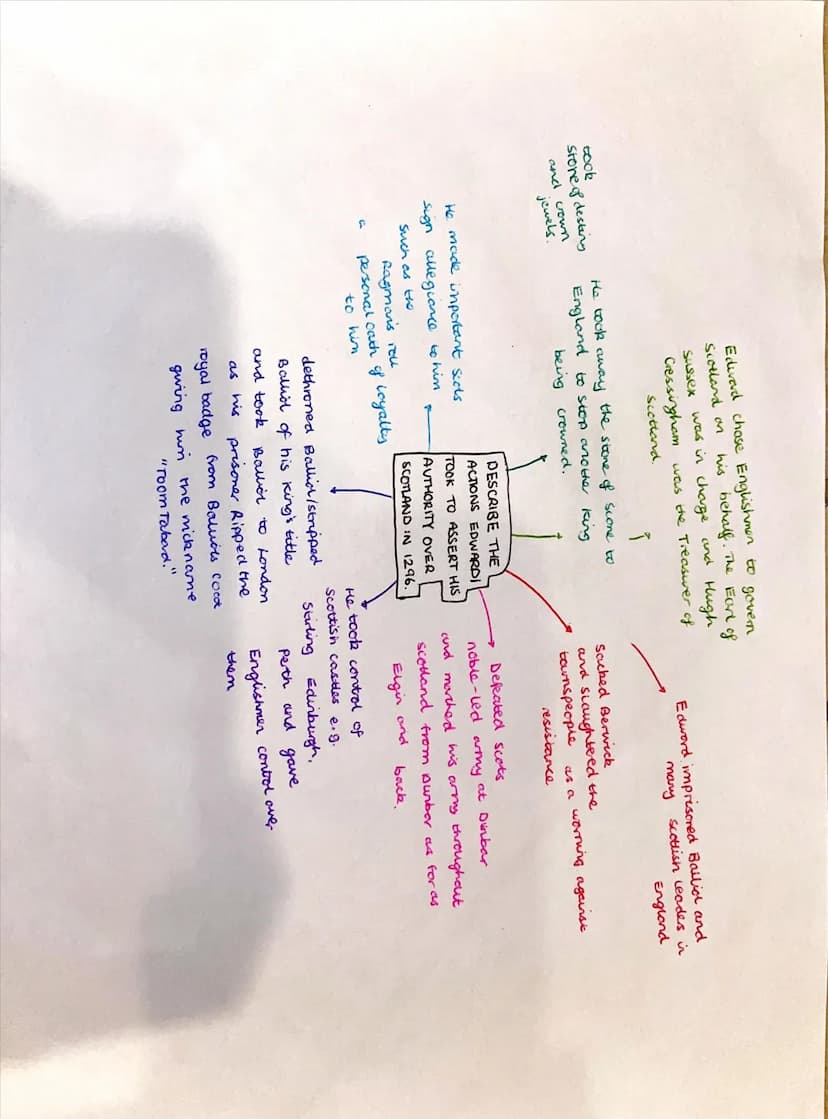 DESCRIBE THE
ACTIONS EDWARD I
TOOK TO ASSERT HIS
AUTHORITY OVER
SCOTLAND IN 1296.
took
stone of destiny
and crown
jewels.
He took away the stone of Scone to
England to stop another king
being crowned.
Edward chose Englishmen to govern
Scotland on his behalf. The Earl of
Sussex was in charge and Hugh
Cressingham was the Treasurer of
Scotland.
Edward imprisoned Balliol and
many Scottish leaders in
England
Sacked Berwick
and slaughtered the
townspeople as a warning against
resistance
Defeated Scots
noble-led army at Dunbar
and marched his army throughout
Scotland from Dunbar as far as
Elgin and back.
He took control of
Scottish castles e.g.
Stirling, Edinburgh,
Perth and gave
Englishmen control over
them
dethroned Balliol/stripped
Balliol of his king's title
and took Balliol to London
as his prisoner Ripped the
royal badge from Balliols coat
giving him the nickname
"Toom Tabard."
He made important Scots
sign allegiance to him
such as the
Ragman's roll
a personal oath of loyalty
to him